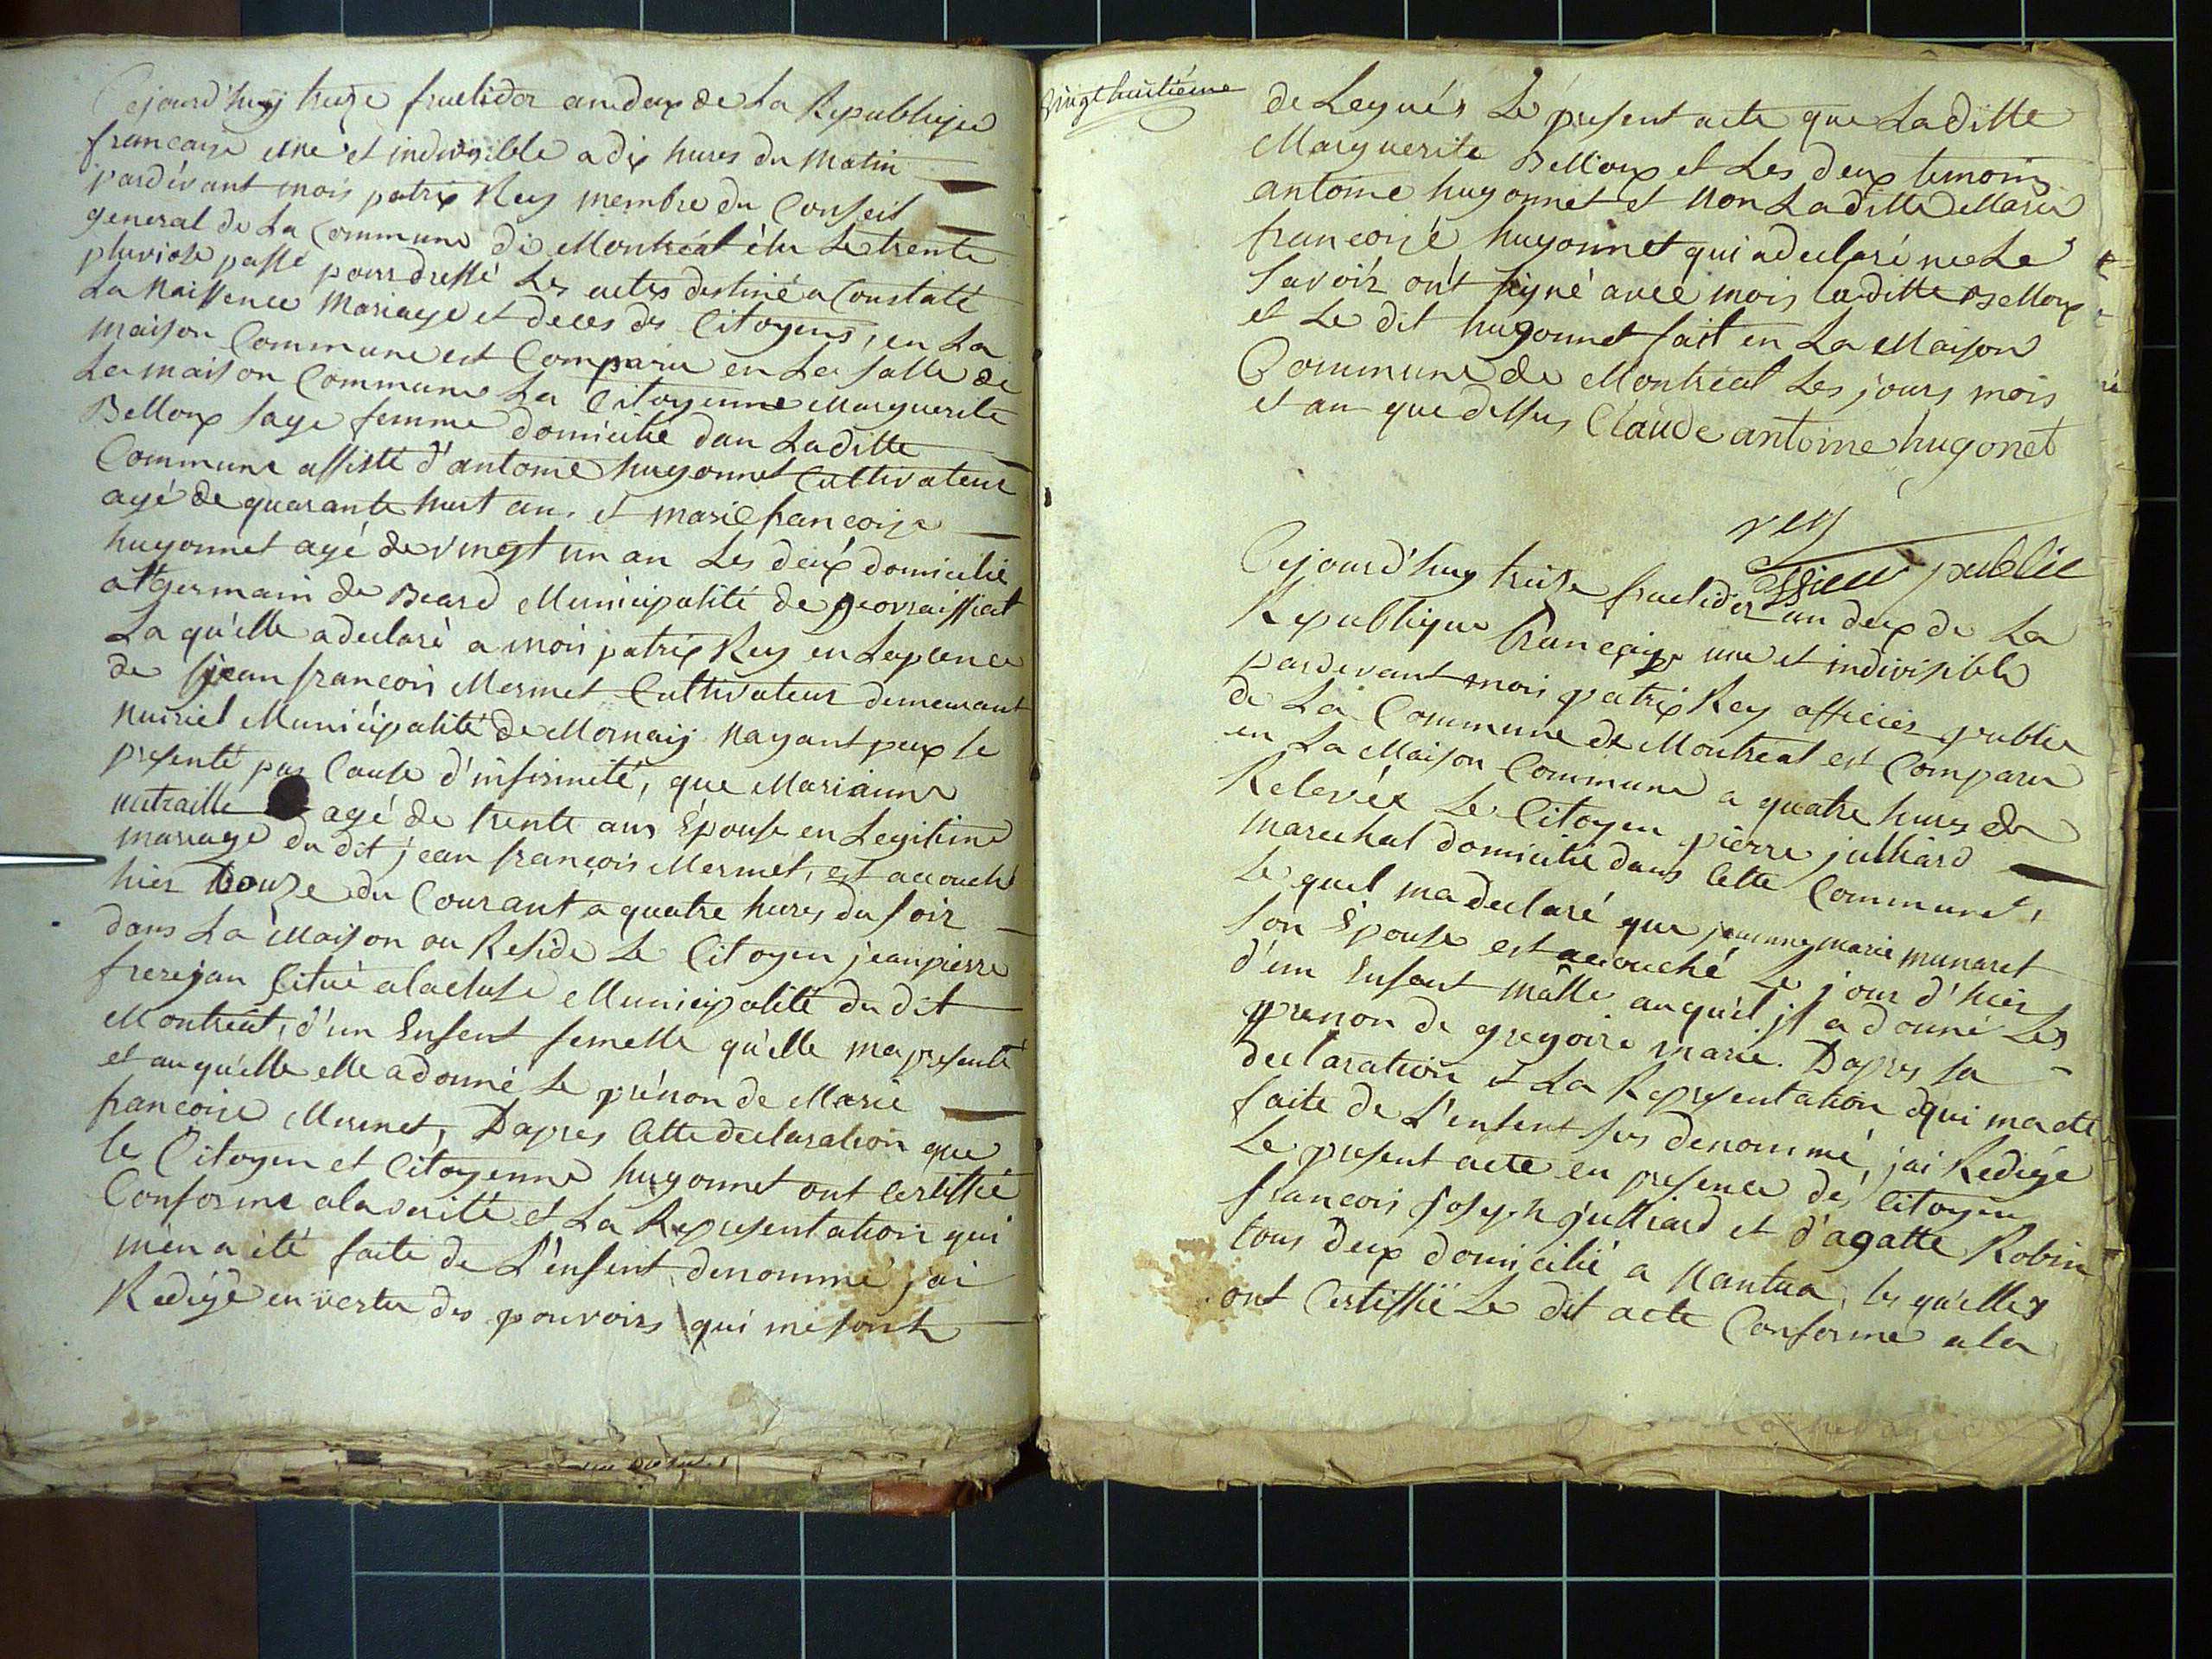 Cejourd'huy treize fructidor an deux de la Republique
francaise une et indivisible a dix hures du matin
pardevant mois patrix Rey membre du Conseil
general de la Commune de Montreal élu le trente
pluviose passé pour dressé les actes destiné a Constaté
la Naissence Mariage et deces des Citoyens, en la
maison Commune est Comparue en la salle de
la maison Commune la Citoyenne Marguerite
Belloux sage femme domicilié dan laditte
Commune assisté d'antoine hugonnet Cultivateur
agé de quarante huit an, et marie francoise
hugonnet agé de vingt un an les deux domicilié
a St germain de Beard Municipalité de geovraissiat
la qu'elle a declaré a mois patrix Rey en la
de jean francois Mermet Cultivateur demeurant
Municipalité de Mornay Nayant peux se
presenté par Cause d'infirmité, que Marianne
agé de trente ans Epouse en Legitime
mariage du dit jean françois Mermet, est accouché
hier douze du Courant a quatre hures du soir
dans la Maison ou Reside le Citoyen jeanpierre
frerejan situé alacluse Municipalité du dit
Montreal, d'un Enfent femelle qu'elle ma presenté
et auqu'elle elle a donné le prénon de Marie
francoise Mermet, Dapres Cette declaration que
le Citoyen et Citoyenne hugonnet ont Certiffié
Conforme ala verité et la Representation qui
m'en a été faite de L'enfent denommé jai
Redigé en vertu des pouvoirs qui me sont
Vingthuitiéme
de Legués le present acte que laditte
Marguerite Belloux et les deux temoins
antoine hugonnet et Non laditte Marie
francoise hugonnet qui a declaré ne le
savoir ont signé avec mois laditte Belloux
et le dit hugonnet fait en la Maison
Commune de Montreal les jours mois
et an que dessus Claude antoine hugonet
rey
public
Cejourd'huy treize fructidor an deux de la
Republique francaise une et indivisible
pardevant mois patrix Rey officier public
de la Commune de Montreal est Comparu
en la Maison Commune a quatre hures de
Relevée le Citoyen pierre julliard
marechal domicilié dans Cette Commune,
le quel ma declaré que jeanne marie munaret
son Epouse est accouché le jour d'hier
d'un Enfant mâlle auquel jl a donné les
prenon de gregoire marie. Dapres sa
declaration et la Representation qui ma eté
faite de L'enfent sus denommé, jai Redigé
le present acte en presence de Citoyen
francois joseph julliard et d'agatte Robin
tous deux domicilié a Nantua, les qu'elles
ont Certiffié le dit acte Conforme ala